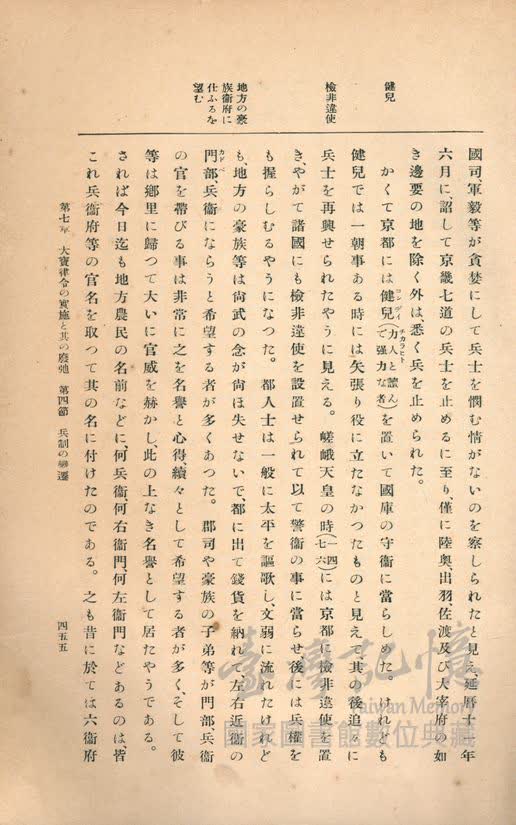 國司、軍毅等が貪婪にして兵士を憫む情がないのを察しられたと見え、延曆十一年
六月に、詔して京畿七道の兵士を止めるに至り、僅に陸奧、出羽、佐渡及び大宰府の如
き邊要の地を除く外は、悉く兵を止められた。
健兒
かくて京都には健兒(力人と讀んで强力な者)を置いて國庫の守衞に當らしめた。けれども
コンデイ
チカラヒト
健兒では一朝事ある時には矢張り役に立たなかつたものと見えて、其の後追々に
檢非違使
兵士を再興せられたやうに見える。嵯峨天皇の時(一四七六)には京都に檢非違使を置
き、やがて諸國にも檢非違使を設置せられて以て警衞の事に當らせ、後には兵權を
も握らしむるやうになつた。都人士は一般に太平を謳歌し、文弱に流れたけれど
地方の豪族衞府に仕ふるを望む
も、地方の豪族等は尙武の念が尙ほ失せないで、都に出て錢貨を納れて左右近衞の
門部兵衞にならうと希望する者が多くあつた。郡司や豪族の子弟等が門部、兵衞
カドベ
の官を帶びる事は非常に之を名譽と心得、續々として希望する者が多く、そして彼
等は鄕里に歸つて大いに官威を赫かし、此の上なき名譽として居たやうである。
されば今日迄も地方農民の名前などに、何兵衞、何右衞門、何左衞門などあるのは、皆
これ兵衞府等の官名を取つて其の名に付けたのである。之も昔に於ては六衞府
第七章 大寶律令の實施と其の廢弛 第四節 兵制の變遷
四五五
臺灣記憶
Taiwan Memory
國家圖書館數位典藏